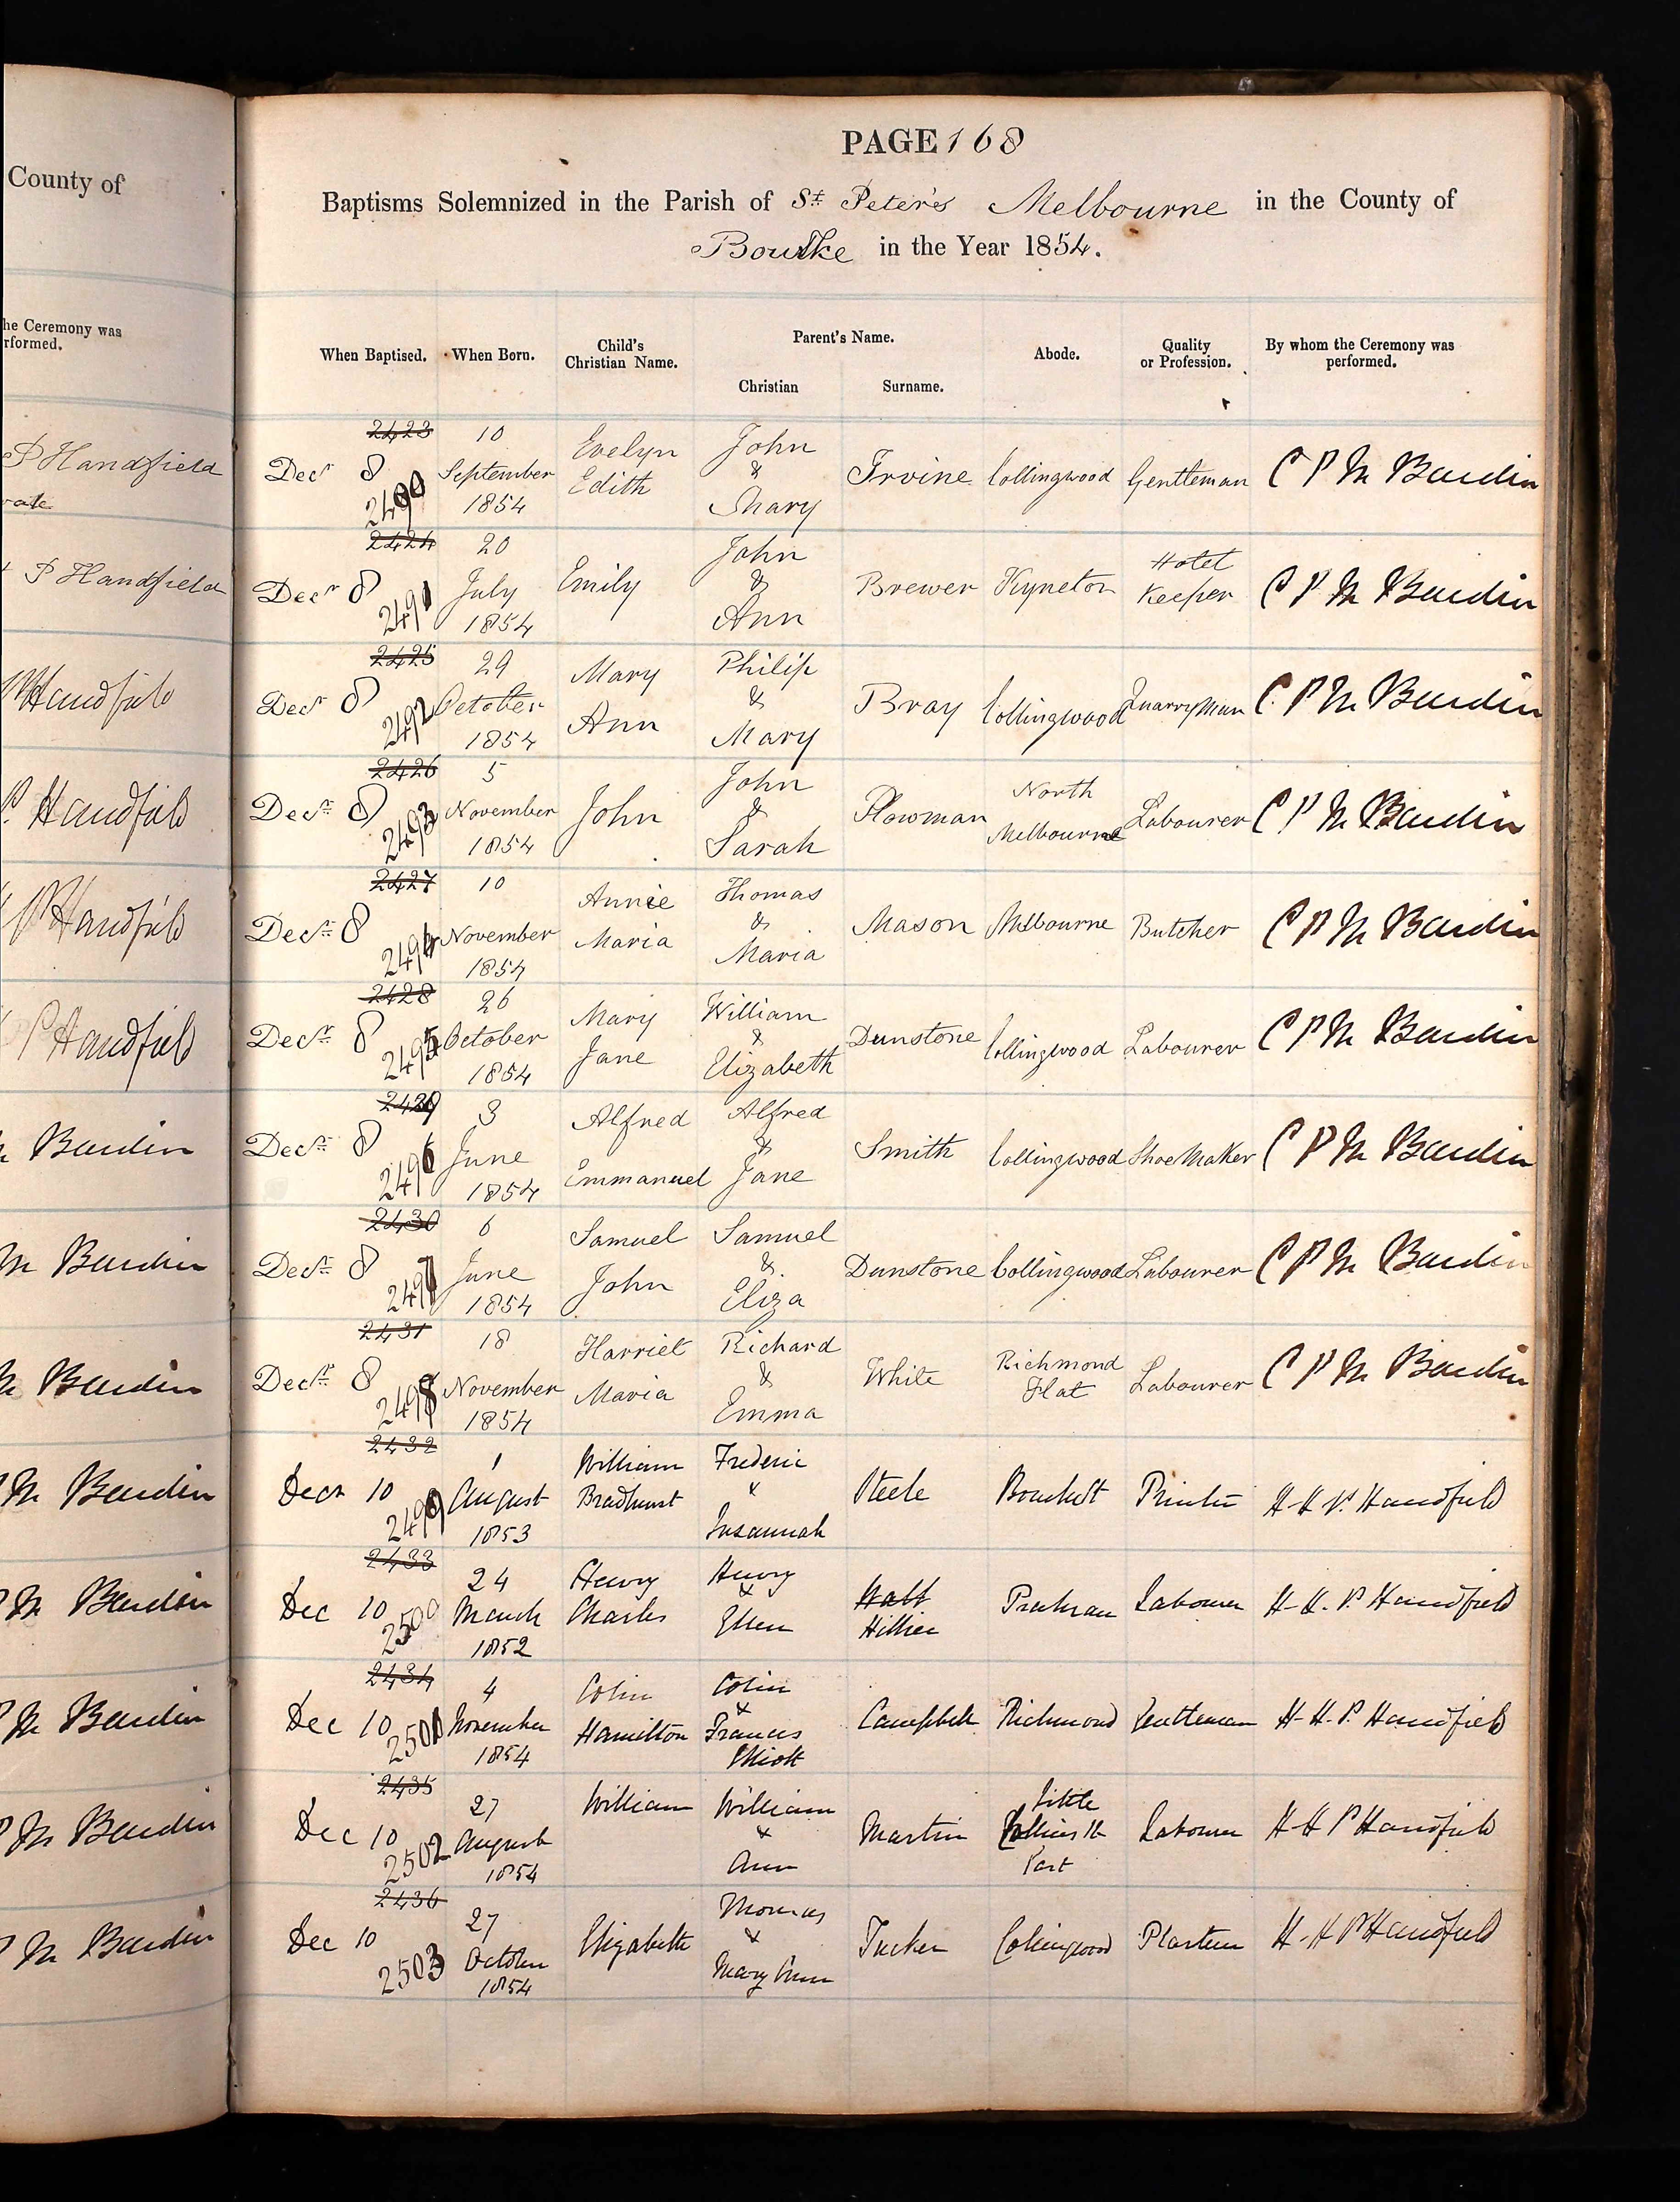 County of
he Ceremony was
rformed.
P Handfield
P Handfield
Handfield
P Handfield
P Handfield
P Handfield
Bardin
M Bardin
M Bardin
M Bardin
M Bardin
M Bardin
M Bardin
M Bardin
PAGE 168
Baptisms Solemnized in the Parish of St Peter's Melbourne in the County of
Bourke in the Year 1854.
When Baptised. When Born. Child's Christian Name. Parent's Name. Christian Surname. Abode. Quality or Profession. By whom the Ceremony was performed.
2423 10 Evelyn John
Decr 8 September Edith & Irvine Collingwood Gentleman C P M Bardin
2490 1854 Mary
2424 20 John
Decr 8 July Emily & Brewer Kyneton Hotel Keeper C P M Bardin
2491 1854 Ann
2425 29 Mary Philip
Decr 8 October Ann & Bray Collingwood Quarryman C P M Bardin
2492 1854 Mary
2426 5 John
Decr 8 November John & Plowman North Melbourne Labourer C P M Bardin
2493 1854 Sarah
2427 10 Annie Thomas
Decr 8 November Maria & Mason Melbourne Butcher C P M Bardin
2494 1854 Maria
2428 26 Mary William
Decr 8 October Jane & Dunstone Collingwood Labourer C P M Bardin
2495 1854 Elizabeth
2429 3 Alfred Alfred
Decr 8 June Emmanuel & Smith Collingwood Shoe Maker C P M Bardin
2496 1854 Jane
2430 6 Samuel Samuel
Decr 8 June John & Dunstone Collingwood Labourer C P M Bardin
2497 1854 Eliza
2431 18 Harriet Richard
Decr 8 November Maria & White Richmond Flat Labourer C P M Bardin
2498 1854 Emma
2432 1 William Frederic
Decr 10 August Bradhurst & Steele Printer H H P Handfield
2499 1853 Susannah
2433 24 Henry Henry
Dec 10 March Charles & Hillier Prahran Labourer H. H. P. Handfield
2500 1852 Ellen
2434 4 Colin Colin
Dec 10 November Hamilton & Frances Campbell Richmond Gentleman H. H. P. Handfield
2501 1854 Elliott
2435 27 William William Little
Dec 10 August & Martin Collins St Labourer H H P Handfield
2502 1854 Ann East
2436 27 Thomas
Dec 10 October Elizabeth & Tucker Collingwood Plasterer H. H P Handfield
2503 1854 Mary Ann